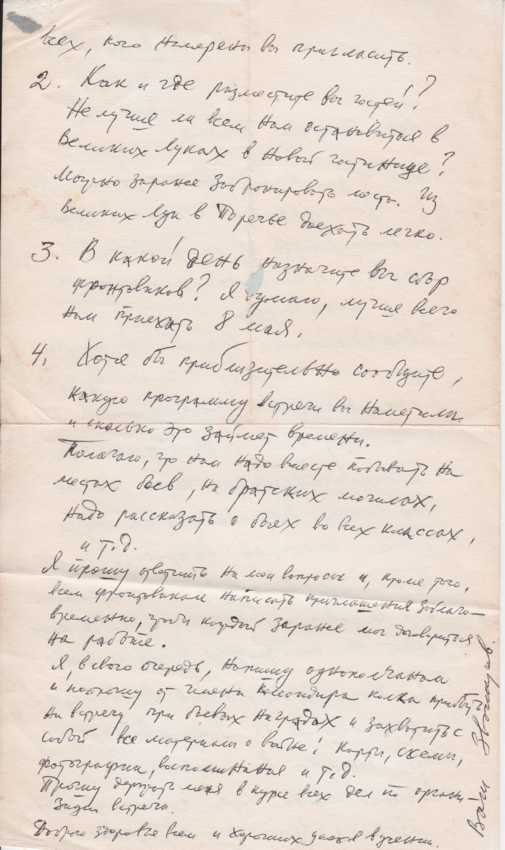 всех, кого намерены вы пригласить.
2. Как и где разместите вы гостей?
Не лучше ли всем нам остановиться в
Великих Луках в новой гостинице?
Можно заранее забронировать места. Из
Великих Лук в Поречье доехать легко.
3. В какой день назначите вы сбор
фронтовиков? Я думаю, лучше всего
нам приехать 8 мая.
4. Хотя бы приблизительно сообщите,
какую программу встречи вы наметили
и сколько это займет времени.
Полагаю, что нам надо вместе побывать на
местах боев, на братских могилах,
надо рассказать о боях во всех классах,
и т.д.
Я прошу ответить на мои вопросы и, кроме того,
всем фронтовикам написать приглашения заблаго-
временно, чтобы каждый заранее мог договориться
на работе.
Я, в свою очередь, напишу однополчанам
и попрошу от имени командира полка прибыть
на встречу при боевых наградах и захватить с
собой все материалы о войне: карты, схемы,
фотографии, воспоминания и т.д.
Прошу держать меня в курсе всех дел по органи-
зации встречи.
Доброго здоровья всем и хороших успехов в учении.
Ваш